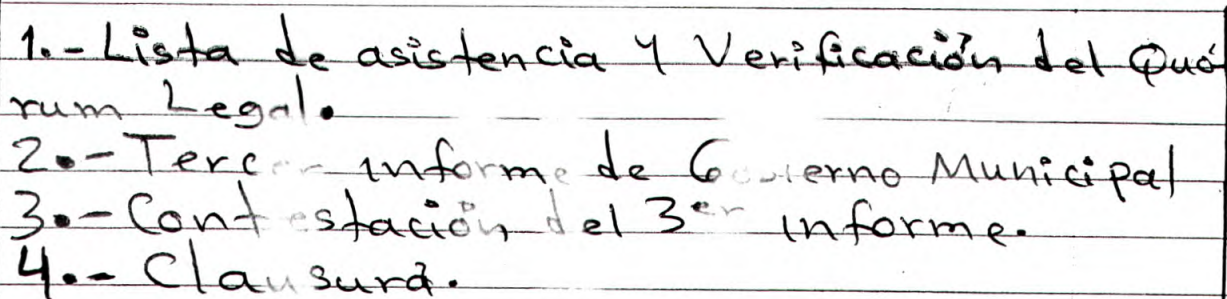 1.- Lista de asistencia y Verificación del Quó
rum Legal.
2.- Tercer informe de Gobierno Municipal
3.- Contestación del 3er informe.
4.- Clausura.